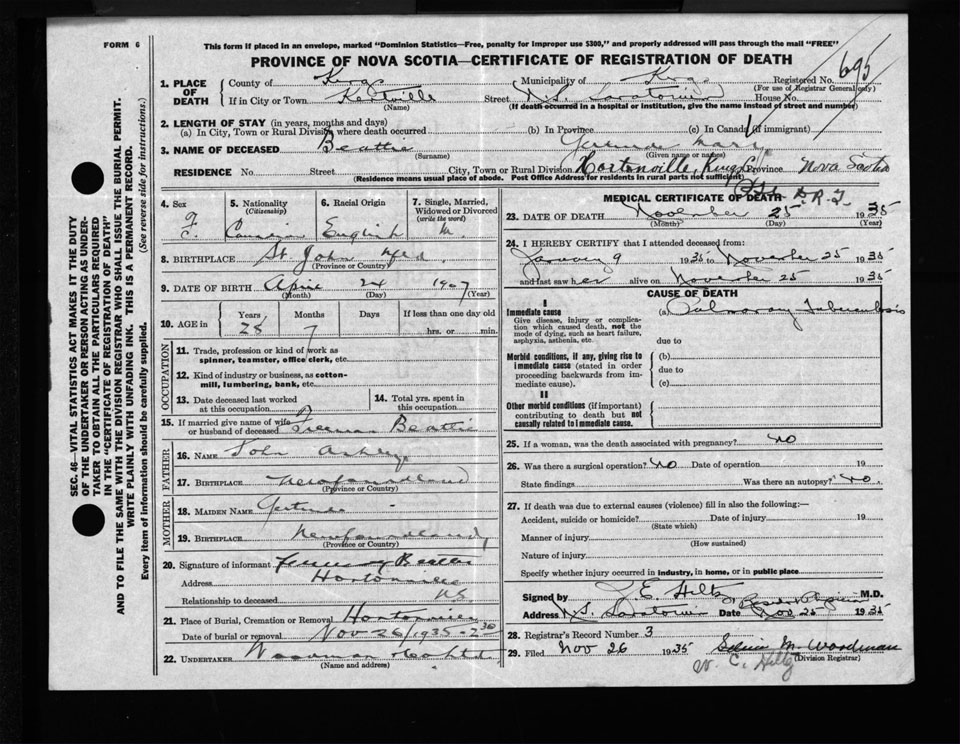 FORM 6
This form if placed in an envelope, marked "Dominion Statistics—Free, penalty for improper use $300," and properly addressed will pass through the mail "FREE"
PROVINCE OF NOVA SCOTIA—CERTIFICATE OF REGISTRATION OF DEATH
695
1. PLACE OF DEATH
County of Kings Municipality of Kings Registered No.
(For use of Registrar General only)
If in City or Town Kentville Street N.S. Sanatorium House No.
(Name) (If death occurred in a hospital or institution, give the name instead of street and number)
2. LENGTH OF STAY (in years, months and days)
(a) In City, Town or Rural Division where death occurred (b) In Province (c) In Canada (if immigrant)
3. NAME OF DECEASED Beattie Gertrude Mary
(Surname) (Given name or names)
RESIDENCE No. Street City, Town or Rural Division Hortonville, Kings Co Province Nova Scotia
(Residence means usual place of abode. Post Office Address for residents in rural parts not sufficient)
SEC. 46—VITAL STATISTICS ACT MAKES IT THE DUTY
OF THE UNDERTAKER OR PERSON ACTING AS UNDER-
TAKER TO OBTAIN ALL THE PARTICULARS REQUIRED
IN THE "CERTIFICATE OF REGISTRATION OF DEATH"
AND TO FILE THE SAME WITH THE DIVISION REGISTRAR WHO SHALL ISSUE THE BURIAL PERMIT.
WRITE PLAINLY WITH UNFADING INK. THIS IS A PERMANENT RECORD.
Every item of information should be carefully supplied. (See reverse side for instructions.)
4. Sex F.
5. Nationality (Citizenship) Canadian
6. Racial Origin English
7. Single, Married, Widowed or Divorced (write the word) M.
8. BIRTHPLACE St. John Nfld.
(Province or Country)
9. DATE OF BIRTH April 24 1907
(Month) (Day) (Year)
10. AGE in Years Months Days If less than one day
28 7 hrs. or min.
OCCUPATION
11. Trade, profession or kind of work as spinner, teamster, office clerk, etc.
12. Kind of industry or business, as cotton-mill, lumbering, bank, etc.
13. Date deceased last worked at this occupation
14. Total yrs. spent in this occupation
15. If married give name of wife or husband of deceased Beattie
FATHER
16. NAME John
17. BIRTHPLACE Newfoundland
(Province or Country)
MOTHER
18. MAIDEN NAME Gertrude
19. BIRTHPLACE Newfoundland
(Province or Country)
20. Signature of informant Beattie
Address Hortonville
Relationship to deceased NS
21. Place of Burial, Cremation or Removal Hortonville
Date of burial or removal Nov 26/1935 - 2 30
22. UNDERTAKER Woodman
(Name and address)
MEDICAL CERTIFICATE OF DEATH
23. DATE OF DEATH November 25 1935
(Month) (Day) (Year)
24. I HEREBY CERTIFY that I attended deceased from:
January 9 1935 to November 25 1935
and last saw her alive on November 25 1935
CAUSE OF DEATH
I
Immediate cause
Give disease, injury or complication which caused death, not the mode of dying, such as heart failure, asphyxia, asthenia, etc.
(a) Pulmonary Tuberculosis
due to
Morbid conditions, if any, giving rise to immediate cause (stated in order proceeding backwards from immediate cause).
(b)
due to
(c)
II
Other morbid conditions (if important) contributing to death but not causally related to immediate cause.
25. If a woman, was the death associated with pregnancy? no
26. Was there a surgical operation? No Date of operation 19
State findings Was there an autopsy? No.
27. If death was due to external causes (violence) fill in also the following:—
Accident, suicide or homicide? Date of injury 19
(State which)
Manner of injury
(How sustained)
Nature of injury
Specify whether injury occurred in industry, in home, or in public place
Signed by J. E. Hiltz M.D.
Address N.S. Sanatorium Date Nov 25 1935
28. Registrar's Record Number 3
29. Filed Nov 26 1935 M. Woodman
(Division Registrar)